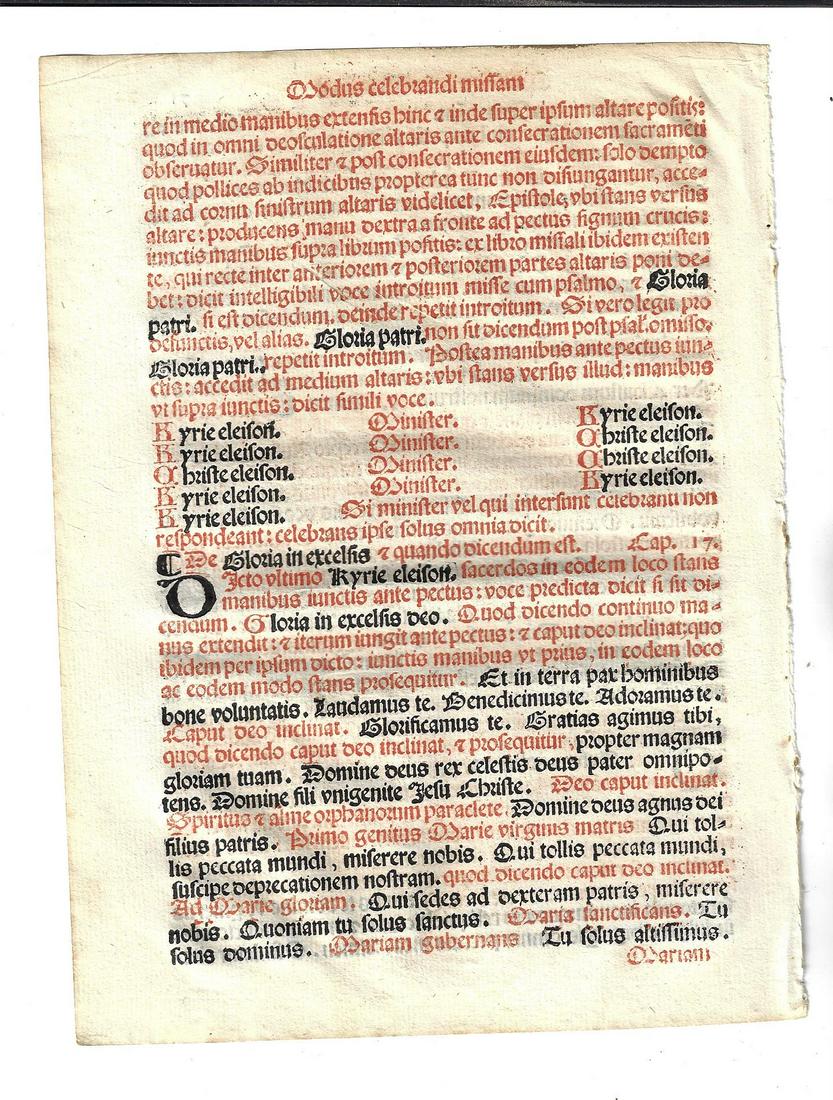 Modus celebrandi missam
re in medio manibus extensis hinc ⁊ inde super ipsum altare positis:
quod in omni deosculatione altaris ante consecrationem sacramēti
obseruatur. Similiter ⁊ post consecrationem eiusdem: solo dempto
quod pollices ab indicibus propterea tunc non disiungantur, acce-
dit ad cornu sinistrum altaris videlicet, Epistole, vbi stans versus
altare: producens manu dextra a fronte ad pectus signum crucis:
iunctis manibus supra librum positis: ex libro missali ibidem existen
te, qui recte inter anteriorem ⁊ posteriorem partes altaris poni de-
bet: dicit intelligibili voce introitum misse cum psalmo, ⁊ Gloria
patri. si est dicendum, deinde repetit introitum. Si vero legit pro
defunctis, vel alias. Gloria patri. non sit dicendum post psal. omisso.
Gloria patri.. repetit introitum. Postea manibus ante pectus iun-
ctis: accedit ad medium altaris: vbi stans versus illud: manibus
vt supra iunctis: dicit simili voce.
Kyrie eleison. Minister. Kyrie eleison.
Kyrie eleison. Minister. Christe eleison.
Christe eleison. Minister. Christe eleison.
Kyrie eleison. Minister. Kyrie eleison.
Kyrie eleison. Si minister vel qui intersunt celebranti non
respondeant: celebrans ipse solus omnia dicit.
¶ De Gloria in excelsis ⁊ quando dicendum est. Cap. 17.
Dicto vltimo Kyrie eleison. sacerdos in eodem loco stans
manibus iunctis ante pectus: voce predicta dicit si sit di-
cendum. Gloria in excelsis deo. Quod dicendo continuo ma-
nus extendit: ⁊ iterum iungit ante pectus: ⁊ caput deo inclinat: quo
ibidem per ipsum dicto: iunctis manibus vt prius, in eodem loco
ac eodem modo stans prosequitur. Et in terra pax hominibus
bone voluntatis. Laudamus te. Benedicimus te. Adoramus te.
Caput deo inclinat. Glorificamus te. Gratias agimus tibi,
quod dicendo caput deo inclinat, ⁊ prosequitur, propter magnam
gloriam tuam. Domine deus rex celestis deus pater omnipo-
tens. Domine fili vnigenite Jesu Christe. Deo caput inclinat.
Spiritus ⁊ alme orphanorum paraclete. Domine deus agnus dei
filius patris. Primo genitus Marie virginis matris Qui tol-
lis peccata mundi, miserere nobis. Qui tollis peccata mundi,
suscipe deprecationem nostram. quod dicendo caput deo inclinat.
Ad Marie gloriam. Qui sedes ad dexteram patris, miserere
nobis. Quoniam tu solus sanctus. Maria sanctificans. Tu
solus dominus. Mariam gubernans Tu solus altissimus.
Mariam